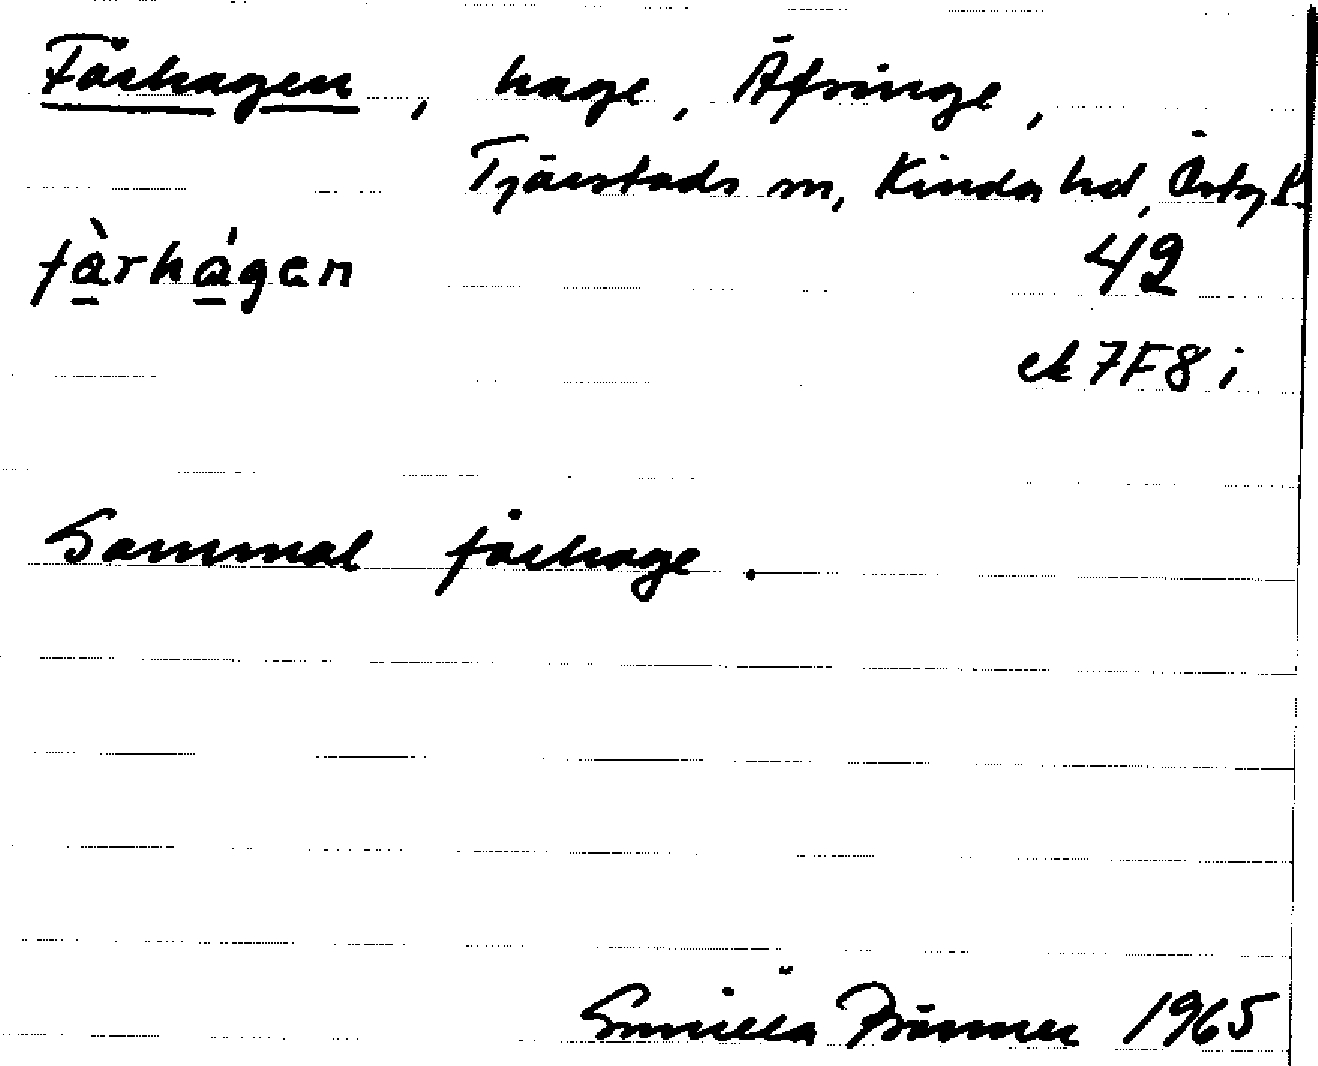 Fårhagen, hage, Äfringe,
Tjärstads sn, Kinda hd, Östg l.
fàrhágen 42
ek 7F8i
Gammal fårhage.
Gunilla Brömer 1965